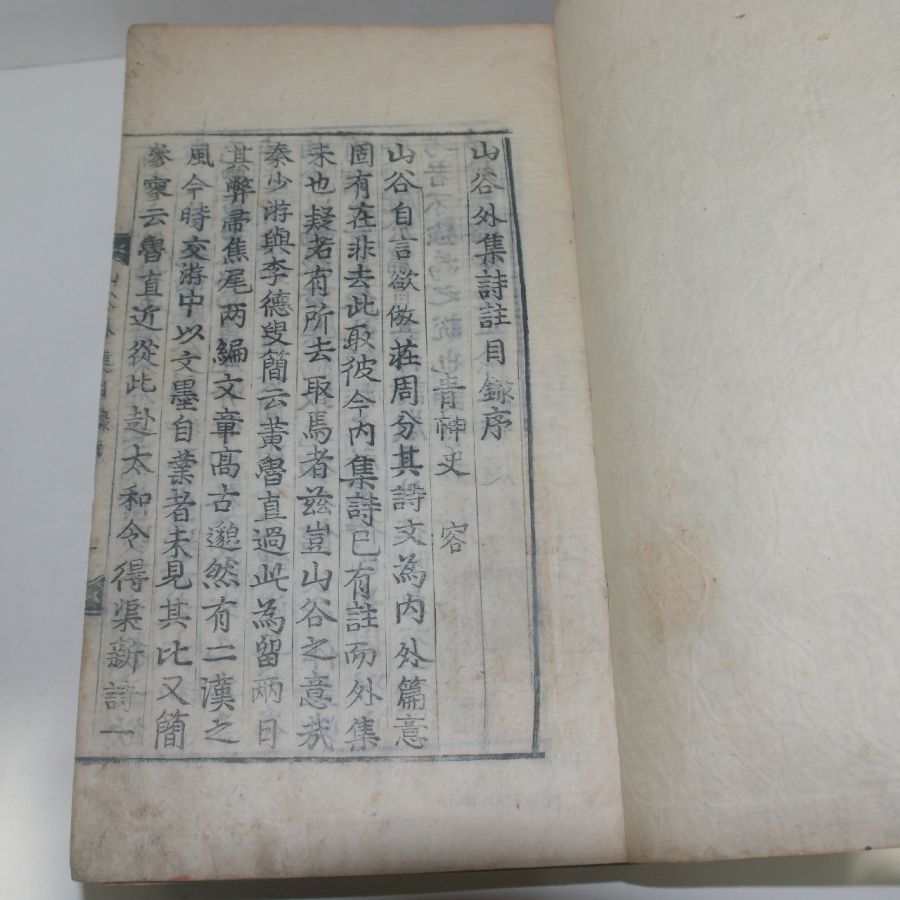 山谷外集詩註目錄序
青神史 容
山谷自言欲倣莊周分其詩文為内外篇意
固有在非去此取彼今内集詩已有註而外集
未也疑若有所去取焉者玆豈山谷之意㢤
秦少游與李德叟簡云黃魯直過此為留兩日
其弊帚焦尾两編文章髙古邈然有二漢之
風今時交游中以文墨自業者未見其比又簡
參寥云魯直近從此赴太和令得渠新詩一